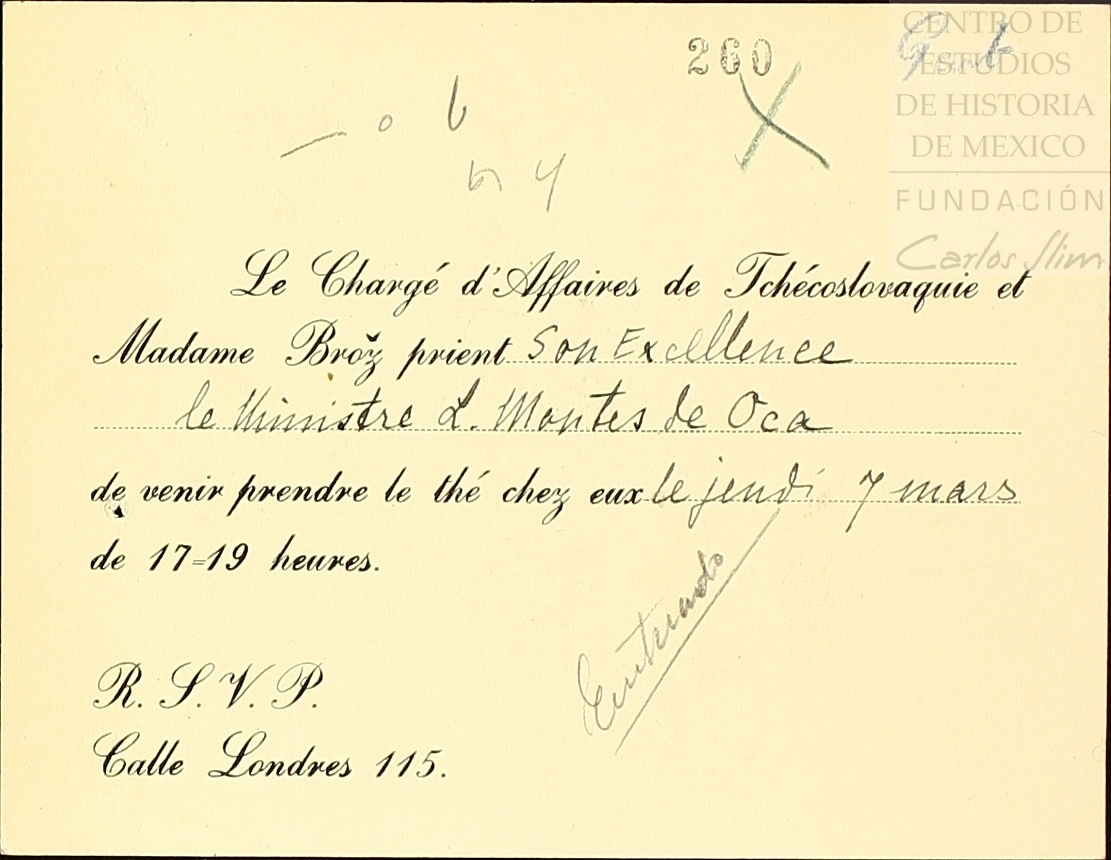 260
CENTRO DE
ESTUDIOS
DE HISTORIA
DE MEXICO
FUNDACIÓN
Carlos Slim
Le Chargé d'Affaires de Tchécoslovaquie et
Madame Brož prient Son Excellence
le Ministre L. Montes de Oca
de venir prendre le thé chez eux le jeudi 7 mars
de 17=19 heures.
R. S. V. P.
Calle Londres 115.